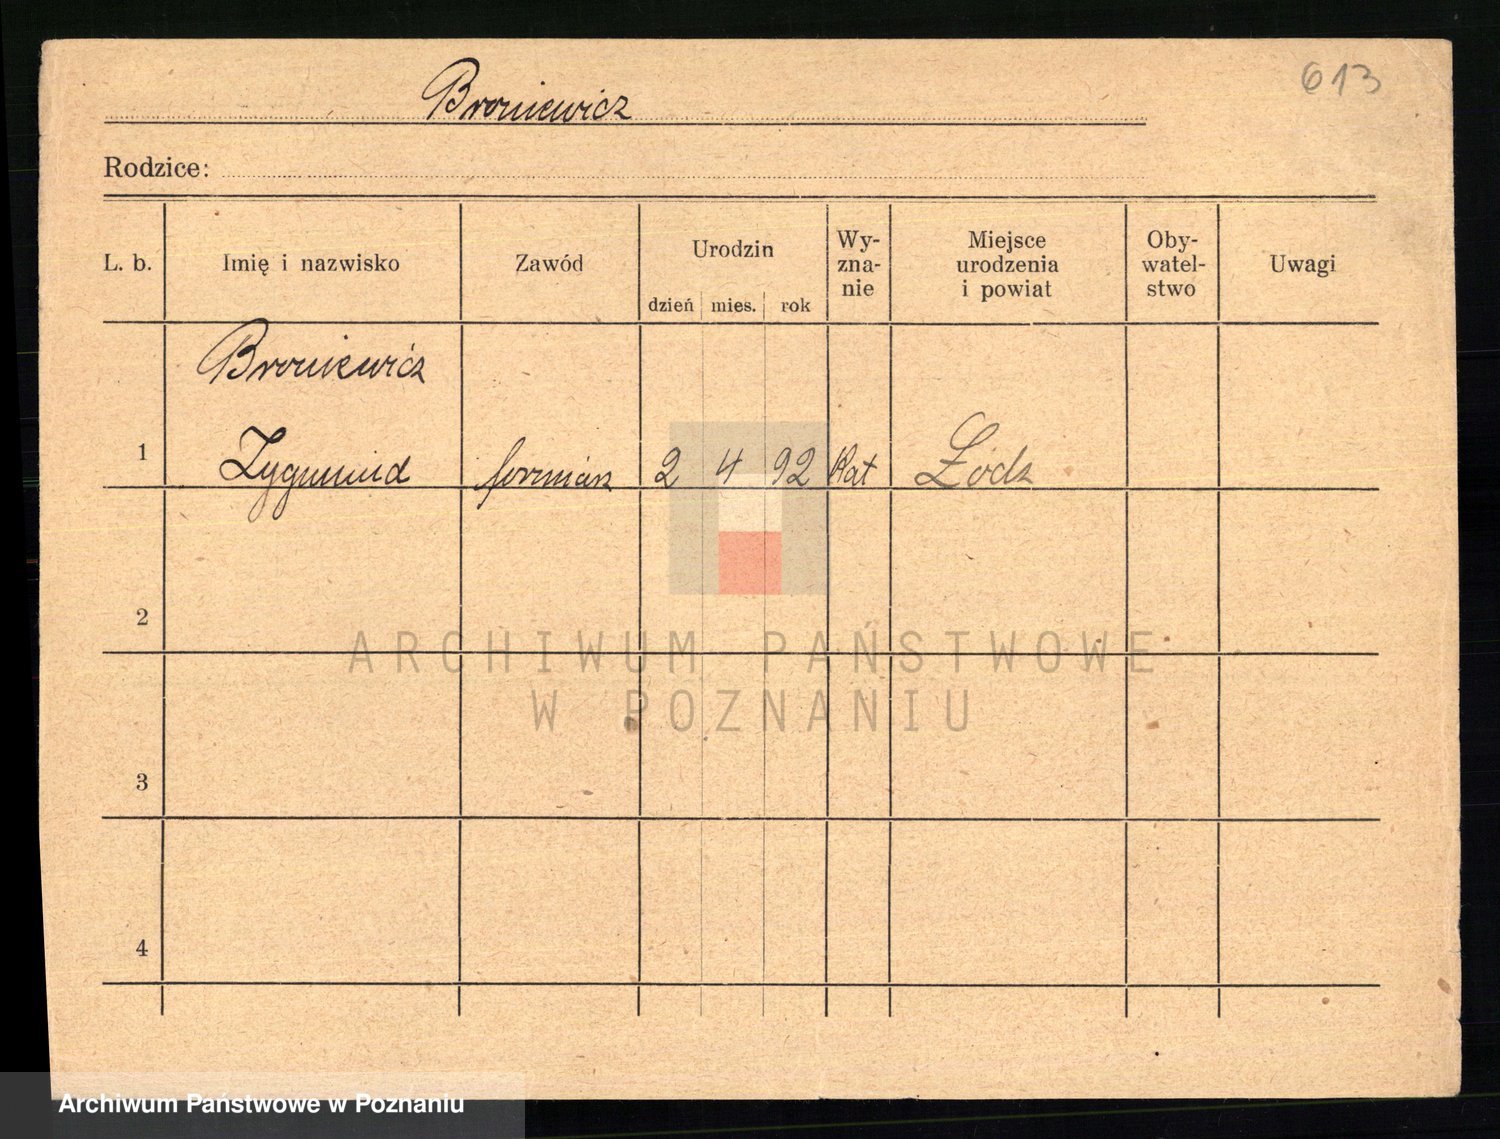 613
Broniewicz
Rodzice:
L. b.
Imię i nazwisko
Zawód
Urodzin
dzień mies. rok
Wy-
zna-
nie
Miejsce
urodzenia
i powiat
Oby-
watel-
stwo
Uwagi
Broniewicz
1 Zygmund forniarz 2 4 92 Kat Łódz
2
3
4
ARCHIWUM PAŃSTWOWE
W POZNANIU
Archiwum Państwowe w Poznaniu